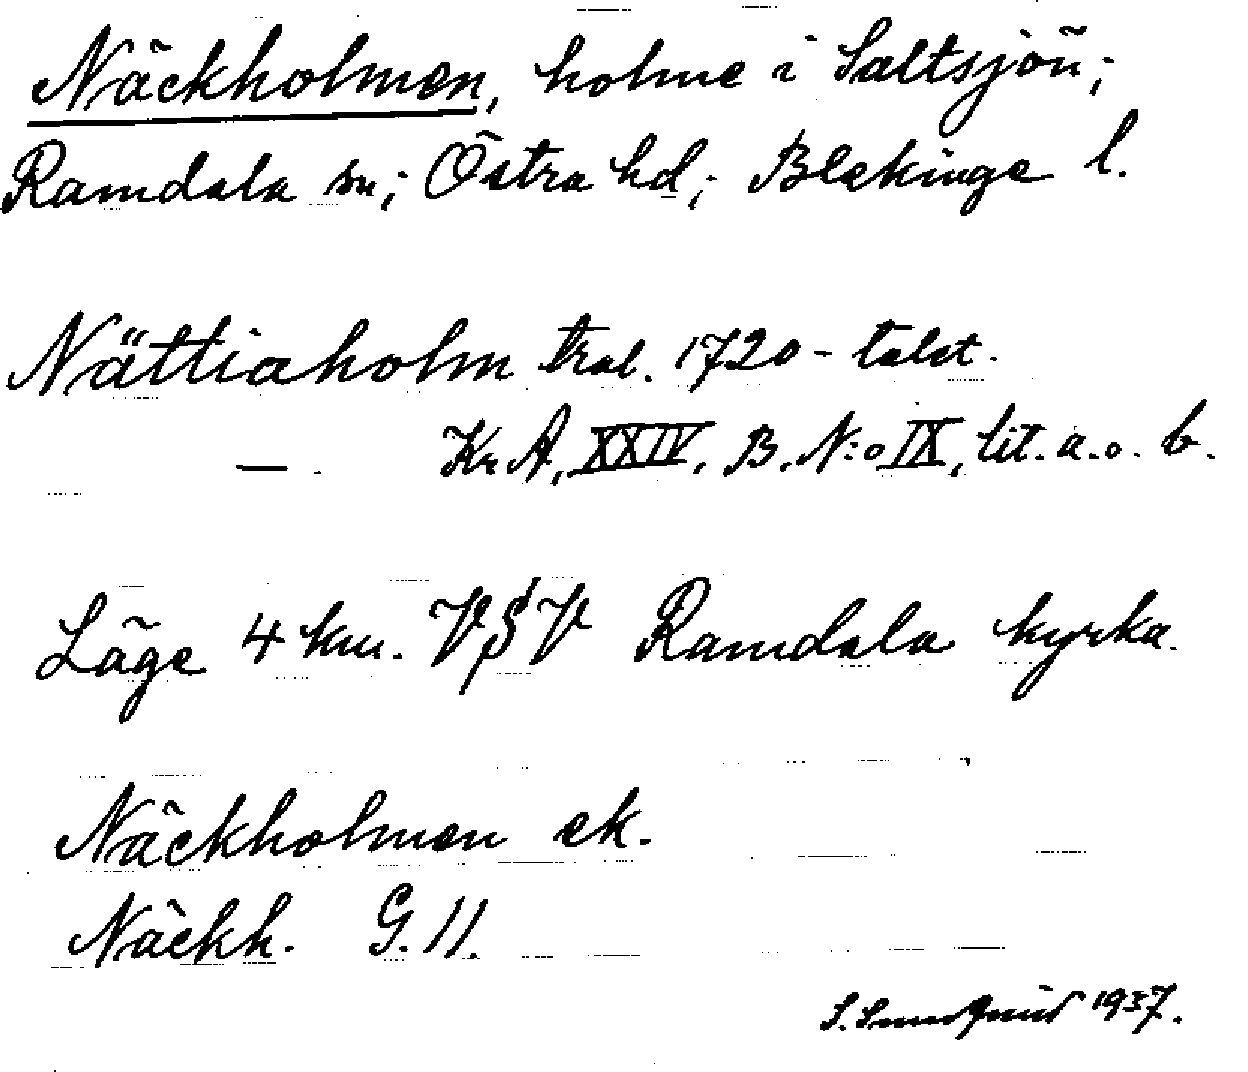 Näckholmen, holme i Saltsjön;
Ramdala sn; Östra hd; Blekinge l.
Nättiaholm tral. 1720-talet.
— . Kr A, XXIV, B. N:o IX, lit. a. o. b.
Läge 4 km. VSV Ramdala kyrka.
Näckholmen ek.
Näckh. G. 11.
1937.